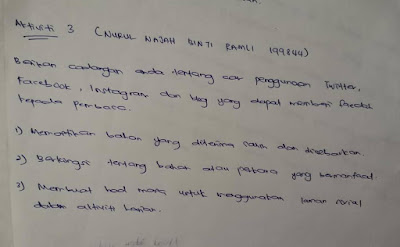 Aktiviti 3 (NURUL NAJAH BINTI RAMLI 199844)
Berikan cadangan anda tentang cara penggunaan Twitter,
Facebook, Instagram dan blog yang dapat memberi faedah
kepada pembaca.
1) Memastikan bahan yang diterima sahih dan disebarkan.
2) Berkongsi tentang bahan atau perkara yang bermanfaat
3) Membuat had masa untuk menggunakan laman sosial
dalam aktiviti harian.